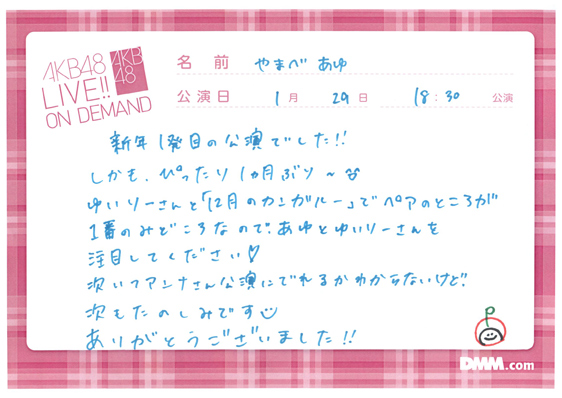 AKB48
LIVE!!
ON DEMAND
AKB
48
名前 やまべ あゆ
公演日 1月 29日 18:30 公演
新年1発目の公演でした!!
しかも、ぴったり1ヵ月ぶり〜
ゆいりーさんと「12月のカンガルー」でペアのところが
1番のみどころなので、あゆとゆいりーさんを
注目してください♡
次いつアンナさん公演にでれるかわからないけど!
次もたのしみです
ありがとうございました!!
DMM.com